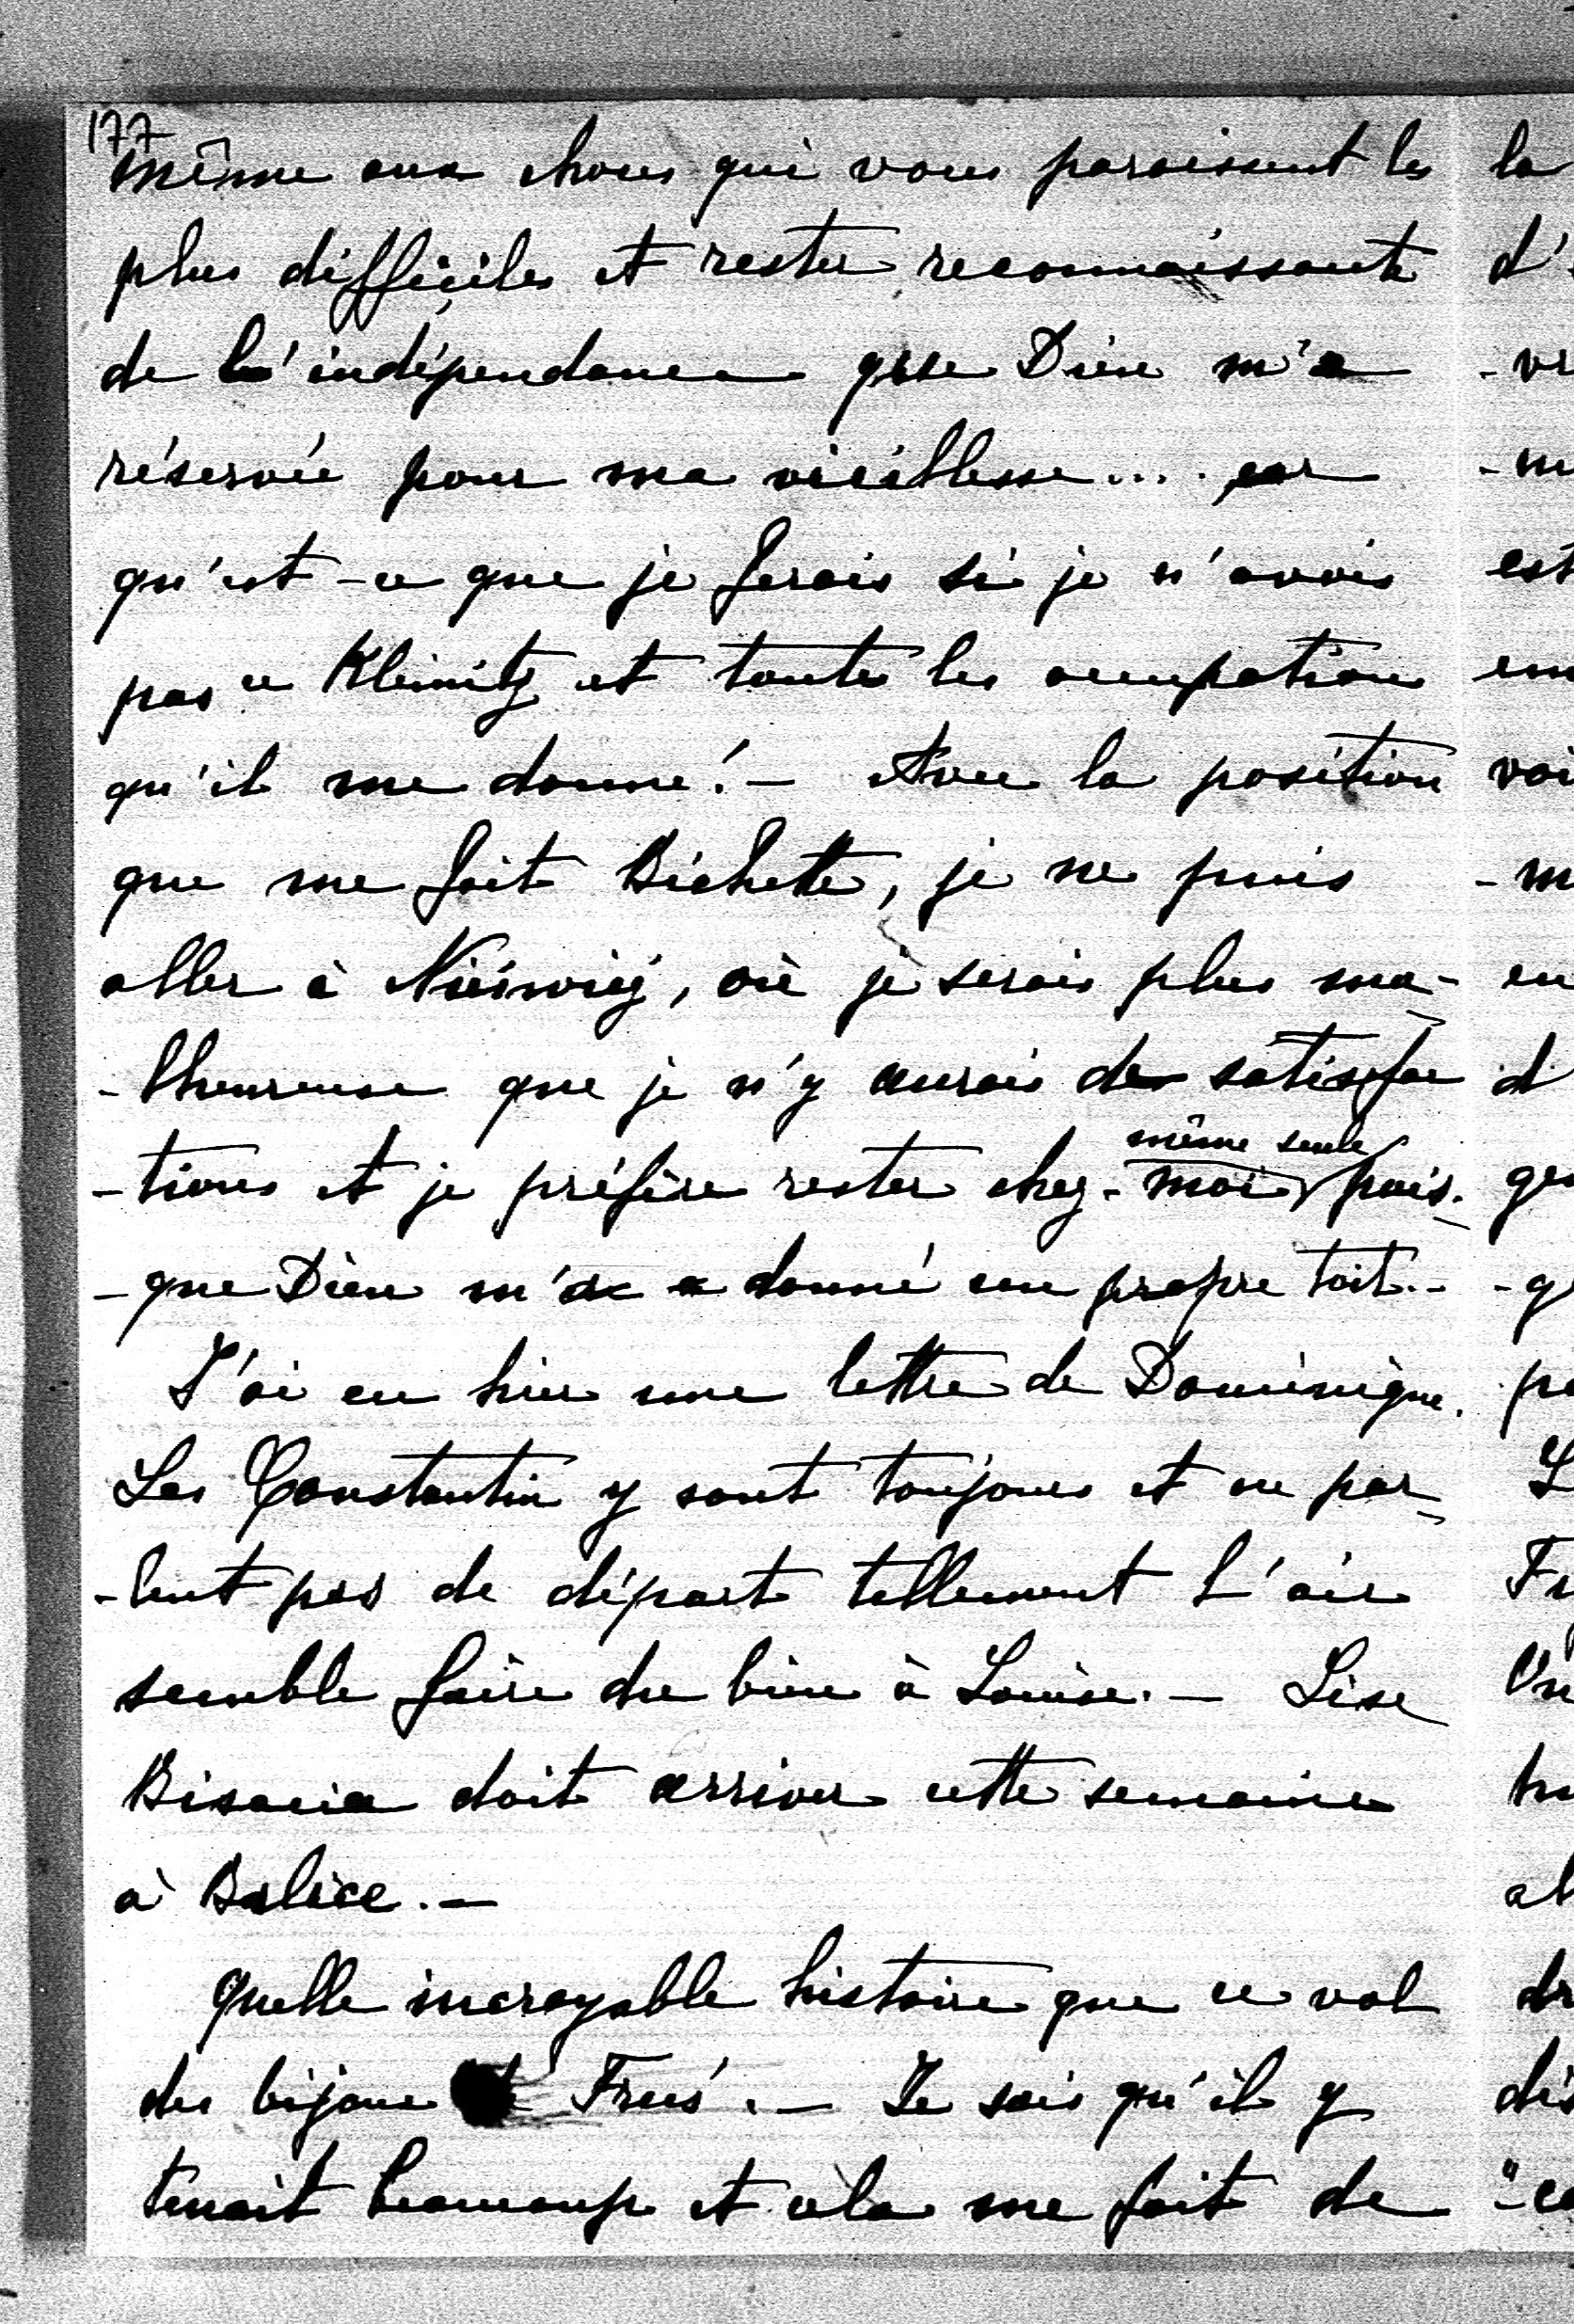 177
même aux choses qui vous paraissent les
plus difficiles et rester reconnaissante
de l'indépendance que Dieu m'a
réservée pour ma vieillesse.... car
qu'est-ce que je ferais si je n'avais
pas ce Kleinitz et toutes les occupations
qu'il me donne! — Avec la position
que me fait Bichette, je ne puis
aller à Nieswiez, où je serais plus ma-
-lheureuse que je n'y aurais de satisfac
-tions et je préfère rester chez-moi même seule puis-
-que Dieu m'a donné un propre toit.-
J'ai eu hier une lettre de Dominique.
Les Constantin y sont toujours et ne par-
-lent pas de départ tellement l'air
semble faire du bien à Louise. — Lise
Bisacia doit arriver cette semaine
à Balice. —
Quelle incroyable histoire que ce vol
des bijoux de Fresé. — Je sais qu'il y
tenait beaucoup et cela me fait de
la
d'
-vr
-m
est
em
voi
-m
en
d
ge
-g
pa
L
Fr
Un
al
dr
dis